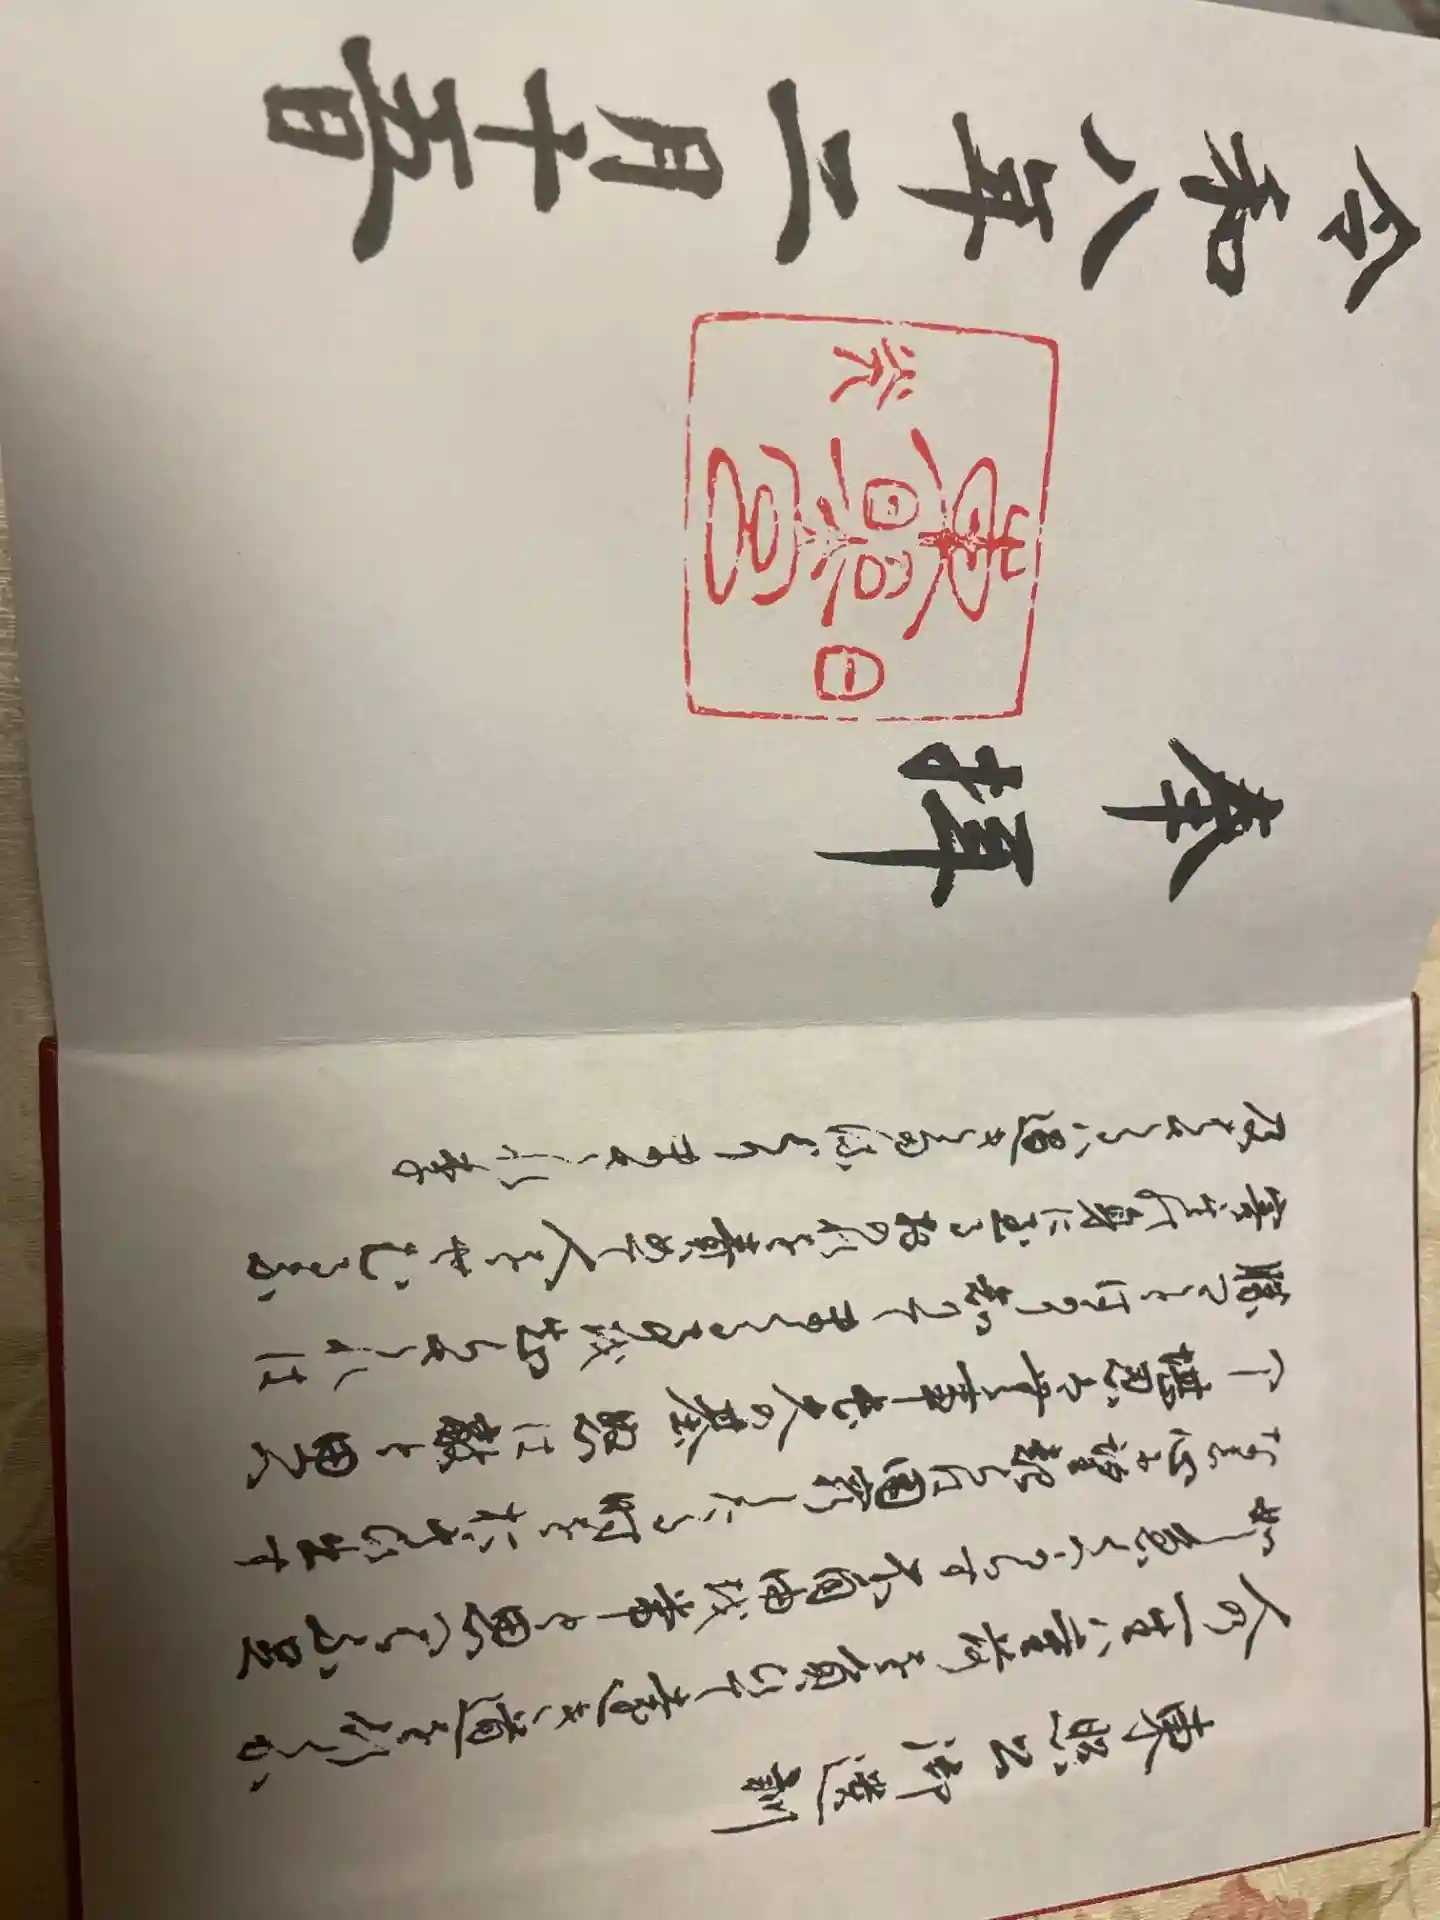 東照公御遺訓
人の一生は重荷を負て遠き道を行くが
如し急ぐべからず不自由を常と思へば不足
なし心に望起らば困窮したる時を思ひ出す
べし堪忍は無事長久の基怒は敵と思へ
勝つ事ばかり知りて負くる事を知らざれば
害其身に至る己を責めて人を責むるな
及ばざるは過ぎたるより勝れり
奉拝
日光
東照宮
令和八年二月十五日